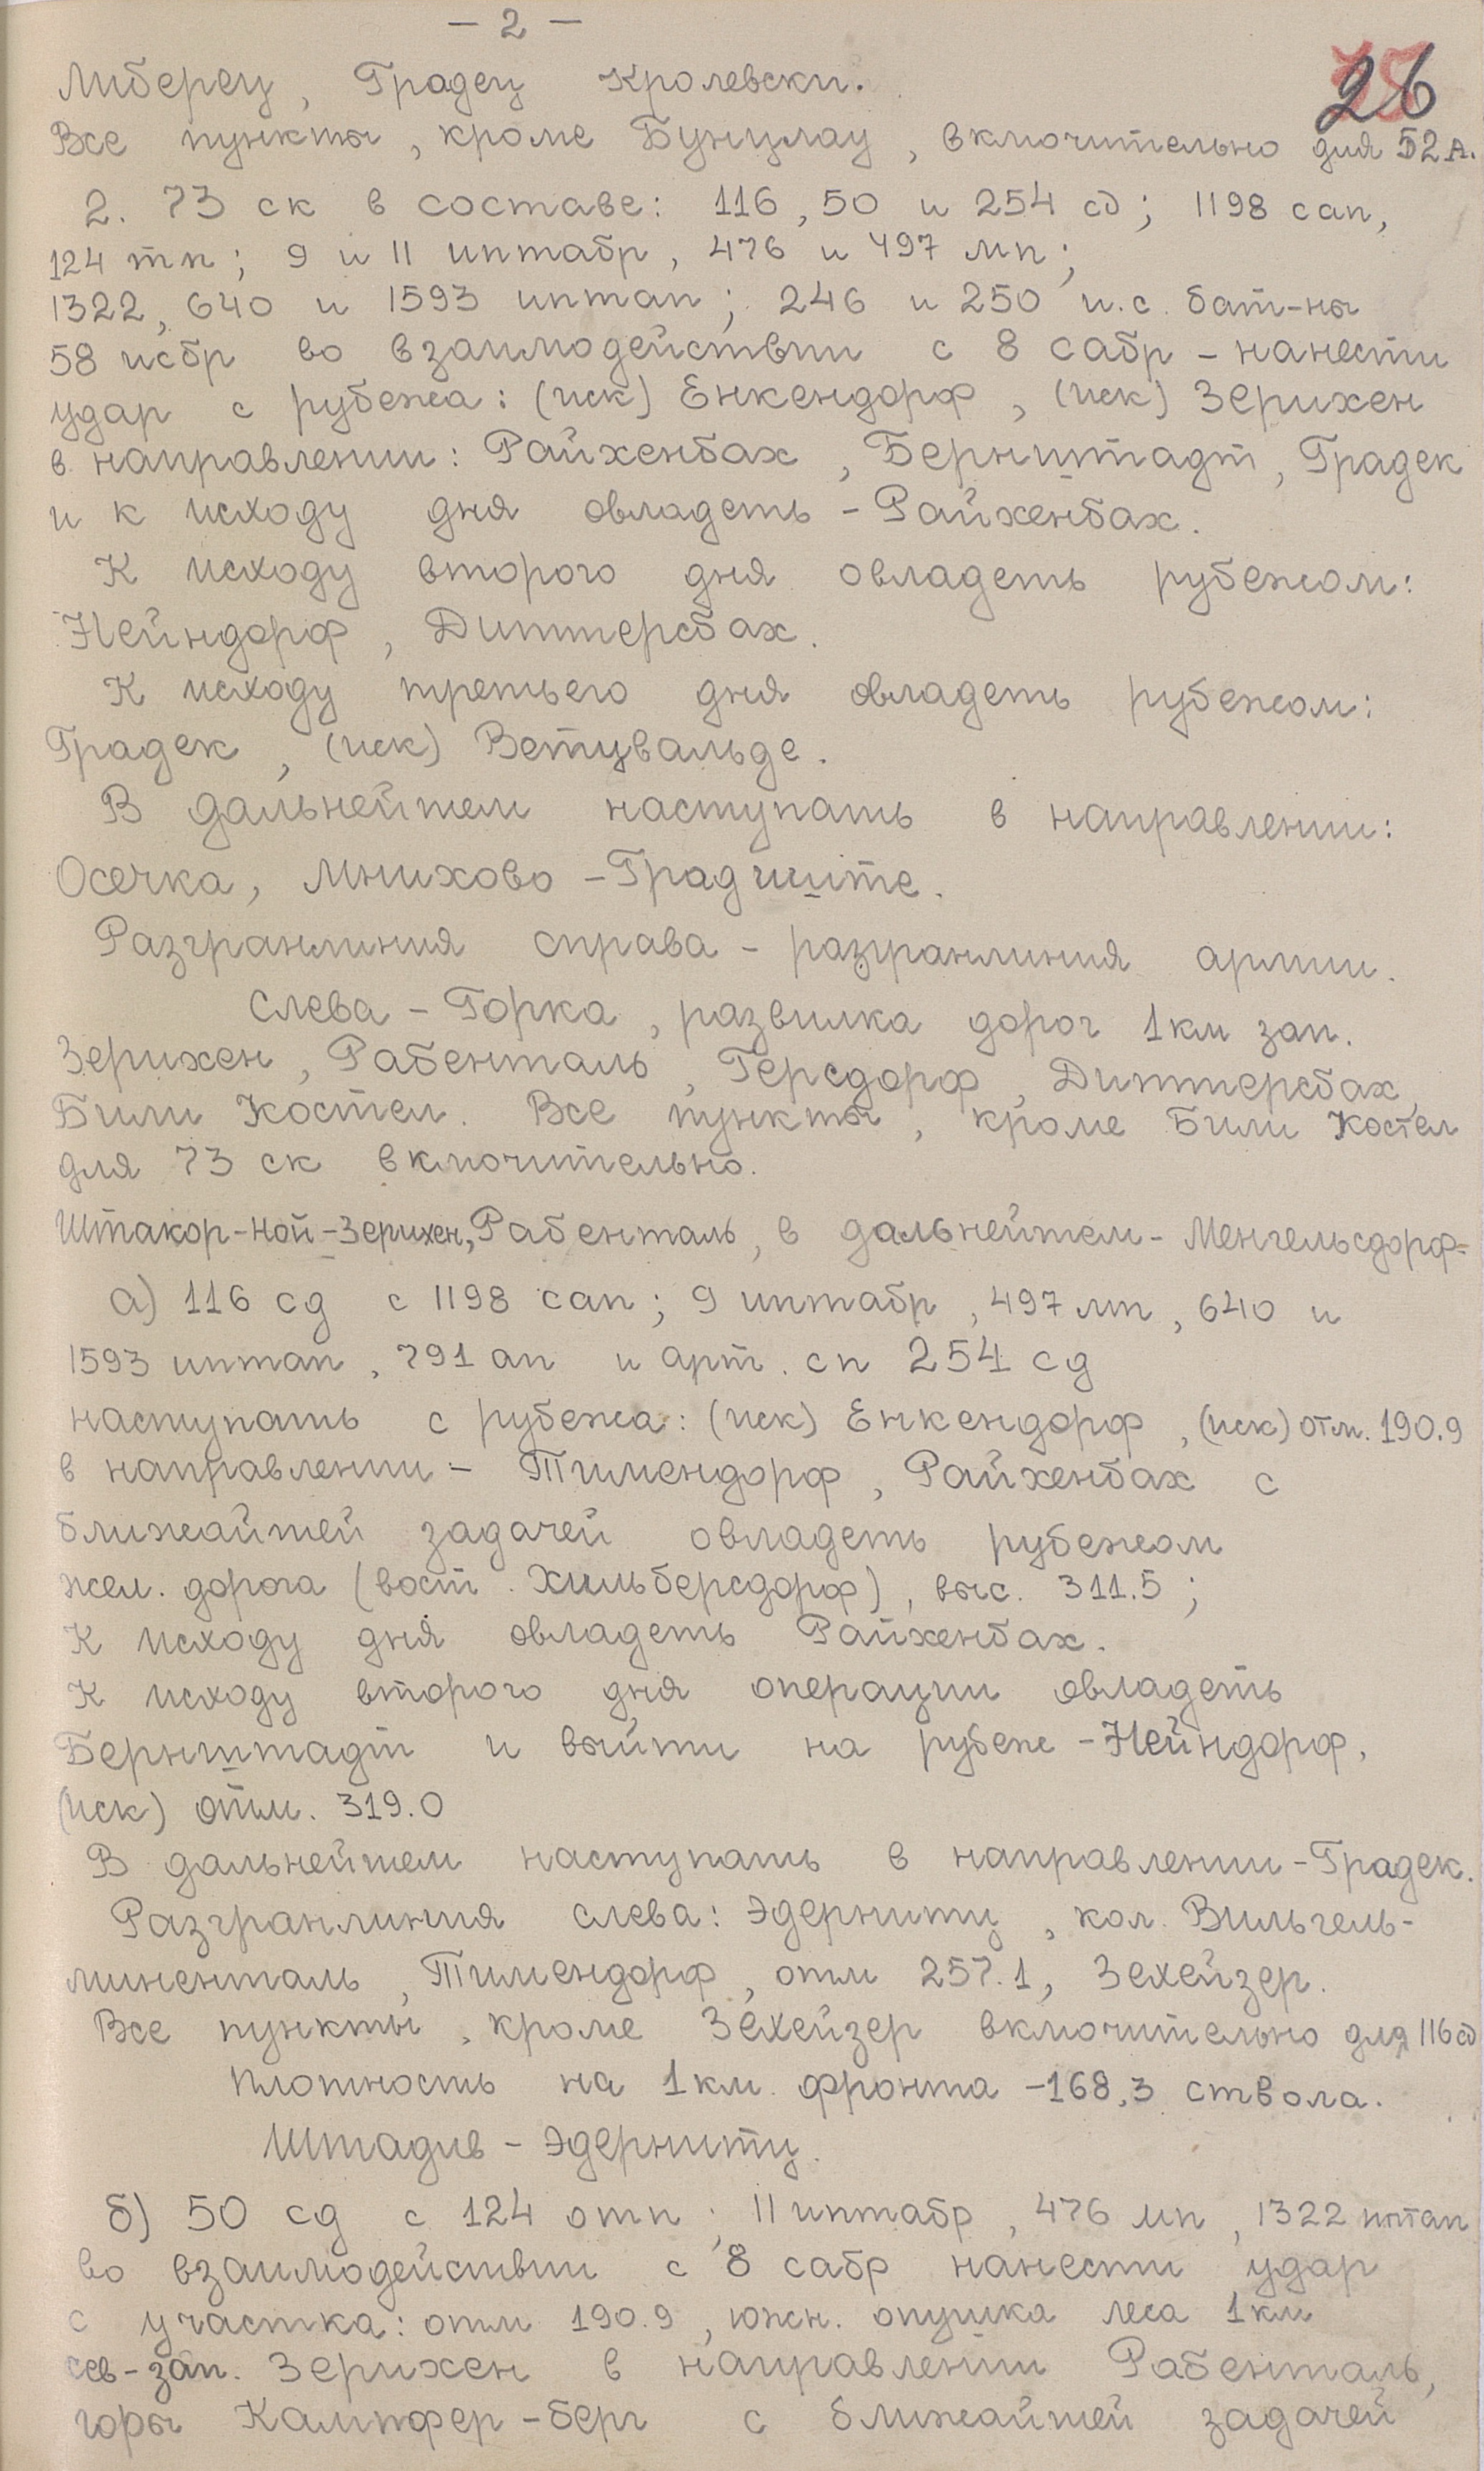 - 2 -
26
Либерец, Градец Кролевски.
Все пункты, кроме Бунцлау, включительно для 52 А.
2. 73 ск в составе: 116, 50 и 254 сд; 1198 сап,
124 тп; 9 и 11 иптабр, 476 и 497 мп;
1322, 640 и 1593 иптап; 246 и 250 и.с. бат-ны
58 исбр во взаимодействии с 8 сабр - нанести
удар с рубежа: (иск) Енкендорф, (иск) Зерихен
в направлении: Райхенбах, Бернштадт, Градек
и к исходу дня овладеть - Райхенбах.
К исходу второго дня овладеть рубежом:
Нейндорф, Диттерсбах.
К исходу третьего дня овладеть рубежом:
Градек, (иск) Ветцвальде.
В дальнейшем наступать в направлении:
Осечка, Мнихово - Градчиште.
Разгранлиния справа - разгранлиния армии.
Слева - Горка, развилка дорог 1 км зап.
Зерихен, Рабенталь, Герсдорф, Диттерсбах,
Били Костел. Все пункты, кроме Били Костел
для 73 ск включительно.
Штакор - Ной-Зерихен, Рабенталь, в дальнейшем - Менгельсдорф-
а) 116 сд с 1198 сап; 9 иптабр, 497 мп, 640 и
1593 иптап, 791 ап и арт. сп 254 сд
наступать с рубежа: (иск) Енкендорф, (иск) отм. 190.9
в направлении - Тимендорф, Райхенбах с
ближайшей задачей овладеть рубежом
жел. дорога (вост. Хильберсдорф), выс. 311.5;
К исходу дня овладеть Райхенбах.
К исходу второго дня операции овладеть
Бернштадт и выйти на рубеж - Нейндорф,
(иск) отм. 319.0
В дальнейшем наступать в направлении - Градек.
Разгранлиния слева: Эдернитц, кол. Вильгель-
миненталь, Тимендорф, отм 257.1, Зехейзер.
Все пункты, кроме Зехейзер включительно для 116 сд
Плотность на 1 км. фронта - 168,3 ствола.
Штадив - Эдернитц.
б) 50 сд с 124 отп; 11 иптабр, 476 мп, 1322 иптап
во взаимодействии с 8 сабр нанести удар
с участка: отм 190.9, южн. опушка леса 1 км
сев-зап. Зерихен в направлении Рабенталь,
горы Кампфер-берг с ближайшей задачей